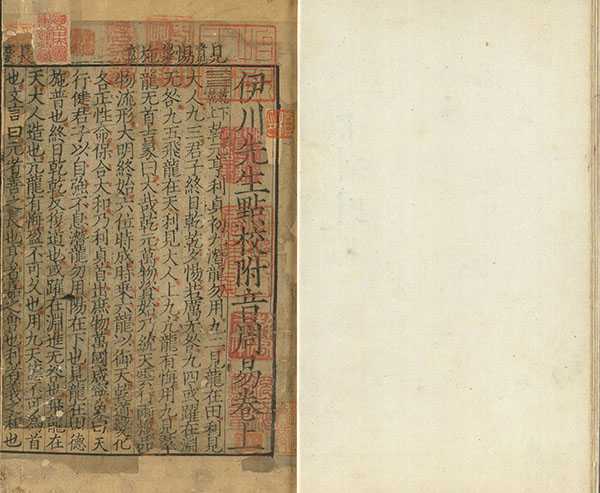 伊川先生點校附音周易卷上
䷀乾下乾上乾元亨利貞初九潛龍勿用九二見龍在田利見
大人九三君子終日乾乾夕惕若厲无咎九四或躍在淵
无咎九五飛龍在天利見大人上九亢龍有悔用九見羣
龍无首吉彖曰大哉乾元萬物資始乃統天雲行雨施品
物流形大明終始六位時成時乘六龍以御天乾道變化
各正性命保合大和乃利貞首出庶物萬國咸寧象曰天
行健君子以自強不息潛龍勿用陽在下也見龍在田德
施普也終日乾乾反復道也或躍在淵進无咎也飛龍在
天大人造也亢龍有悔盈不可久也用九天德不可爲首
也文言曰元者善之長也亨者嘉之會也利者義之和也
見
惕
施
長